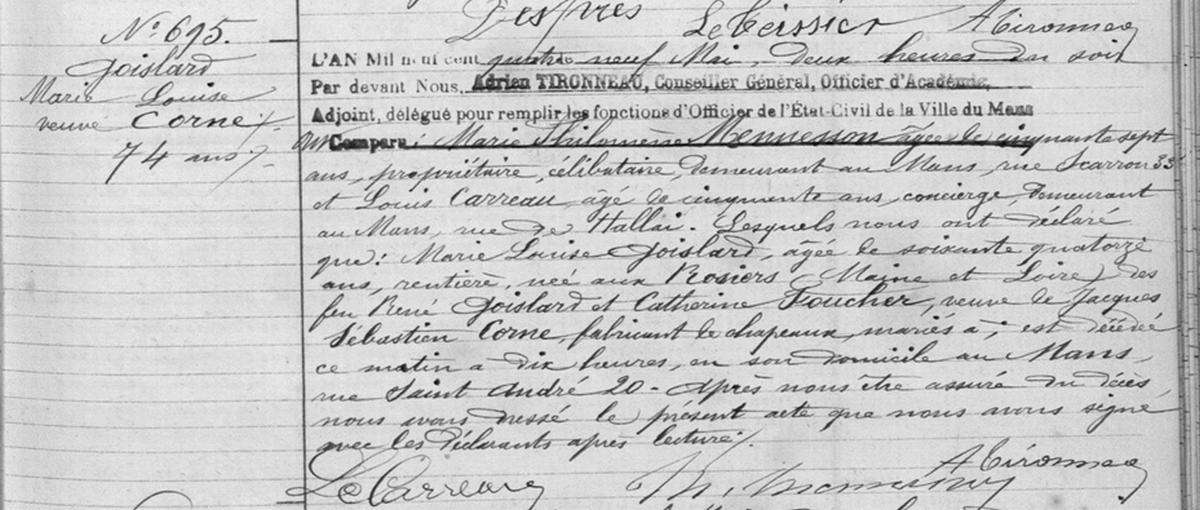 Despres Le Teissier A Tironneau
N° 695.
Goislard
Marie Louise
veuve Corne /.
74 ans /.
L'AN Mil neuf cent quatre neuf Mai, deux heures du soir
Par devant Nous, Adrien TIRONNEAU, Conseiller Général, Officier d'Académie,
Adjoint, délégué pour remplir les fonctions d'Officier de l'État-Civil de la Ville du Mans
ont Comparu : Marie Philomène Mennesson âgée de cinquante sept
ans, propriétaire, célibataire, demeurant au Mans, rue Scarron 33
et Louis Carreau âgé de cinquante ans, concierge, demeurant
au Mans, rue de Hallai. Lesquels nous ont déclaré
que : Marie Louise Goislard, âgée de soixante quatorze
ans, rentière, née aux Rosiers (Maine et Loire) des
feu René Goislard et Catherine Foucher, veuve de Jacques
Sébastien Corne, fabricant de chapeaux, mariés à ; est décédée
ce matin à dix heures, en son domicile au Mans,
rue Saint André 20 - Après nous être assuré du décès,
nous avons dressé le présent acte que nous avons signé
avec les déclarants après lecture /.
A Tironneau
L Carreau M. Mennesson